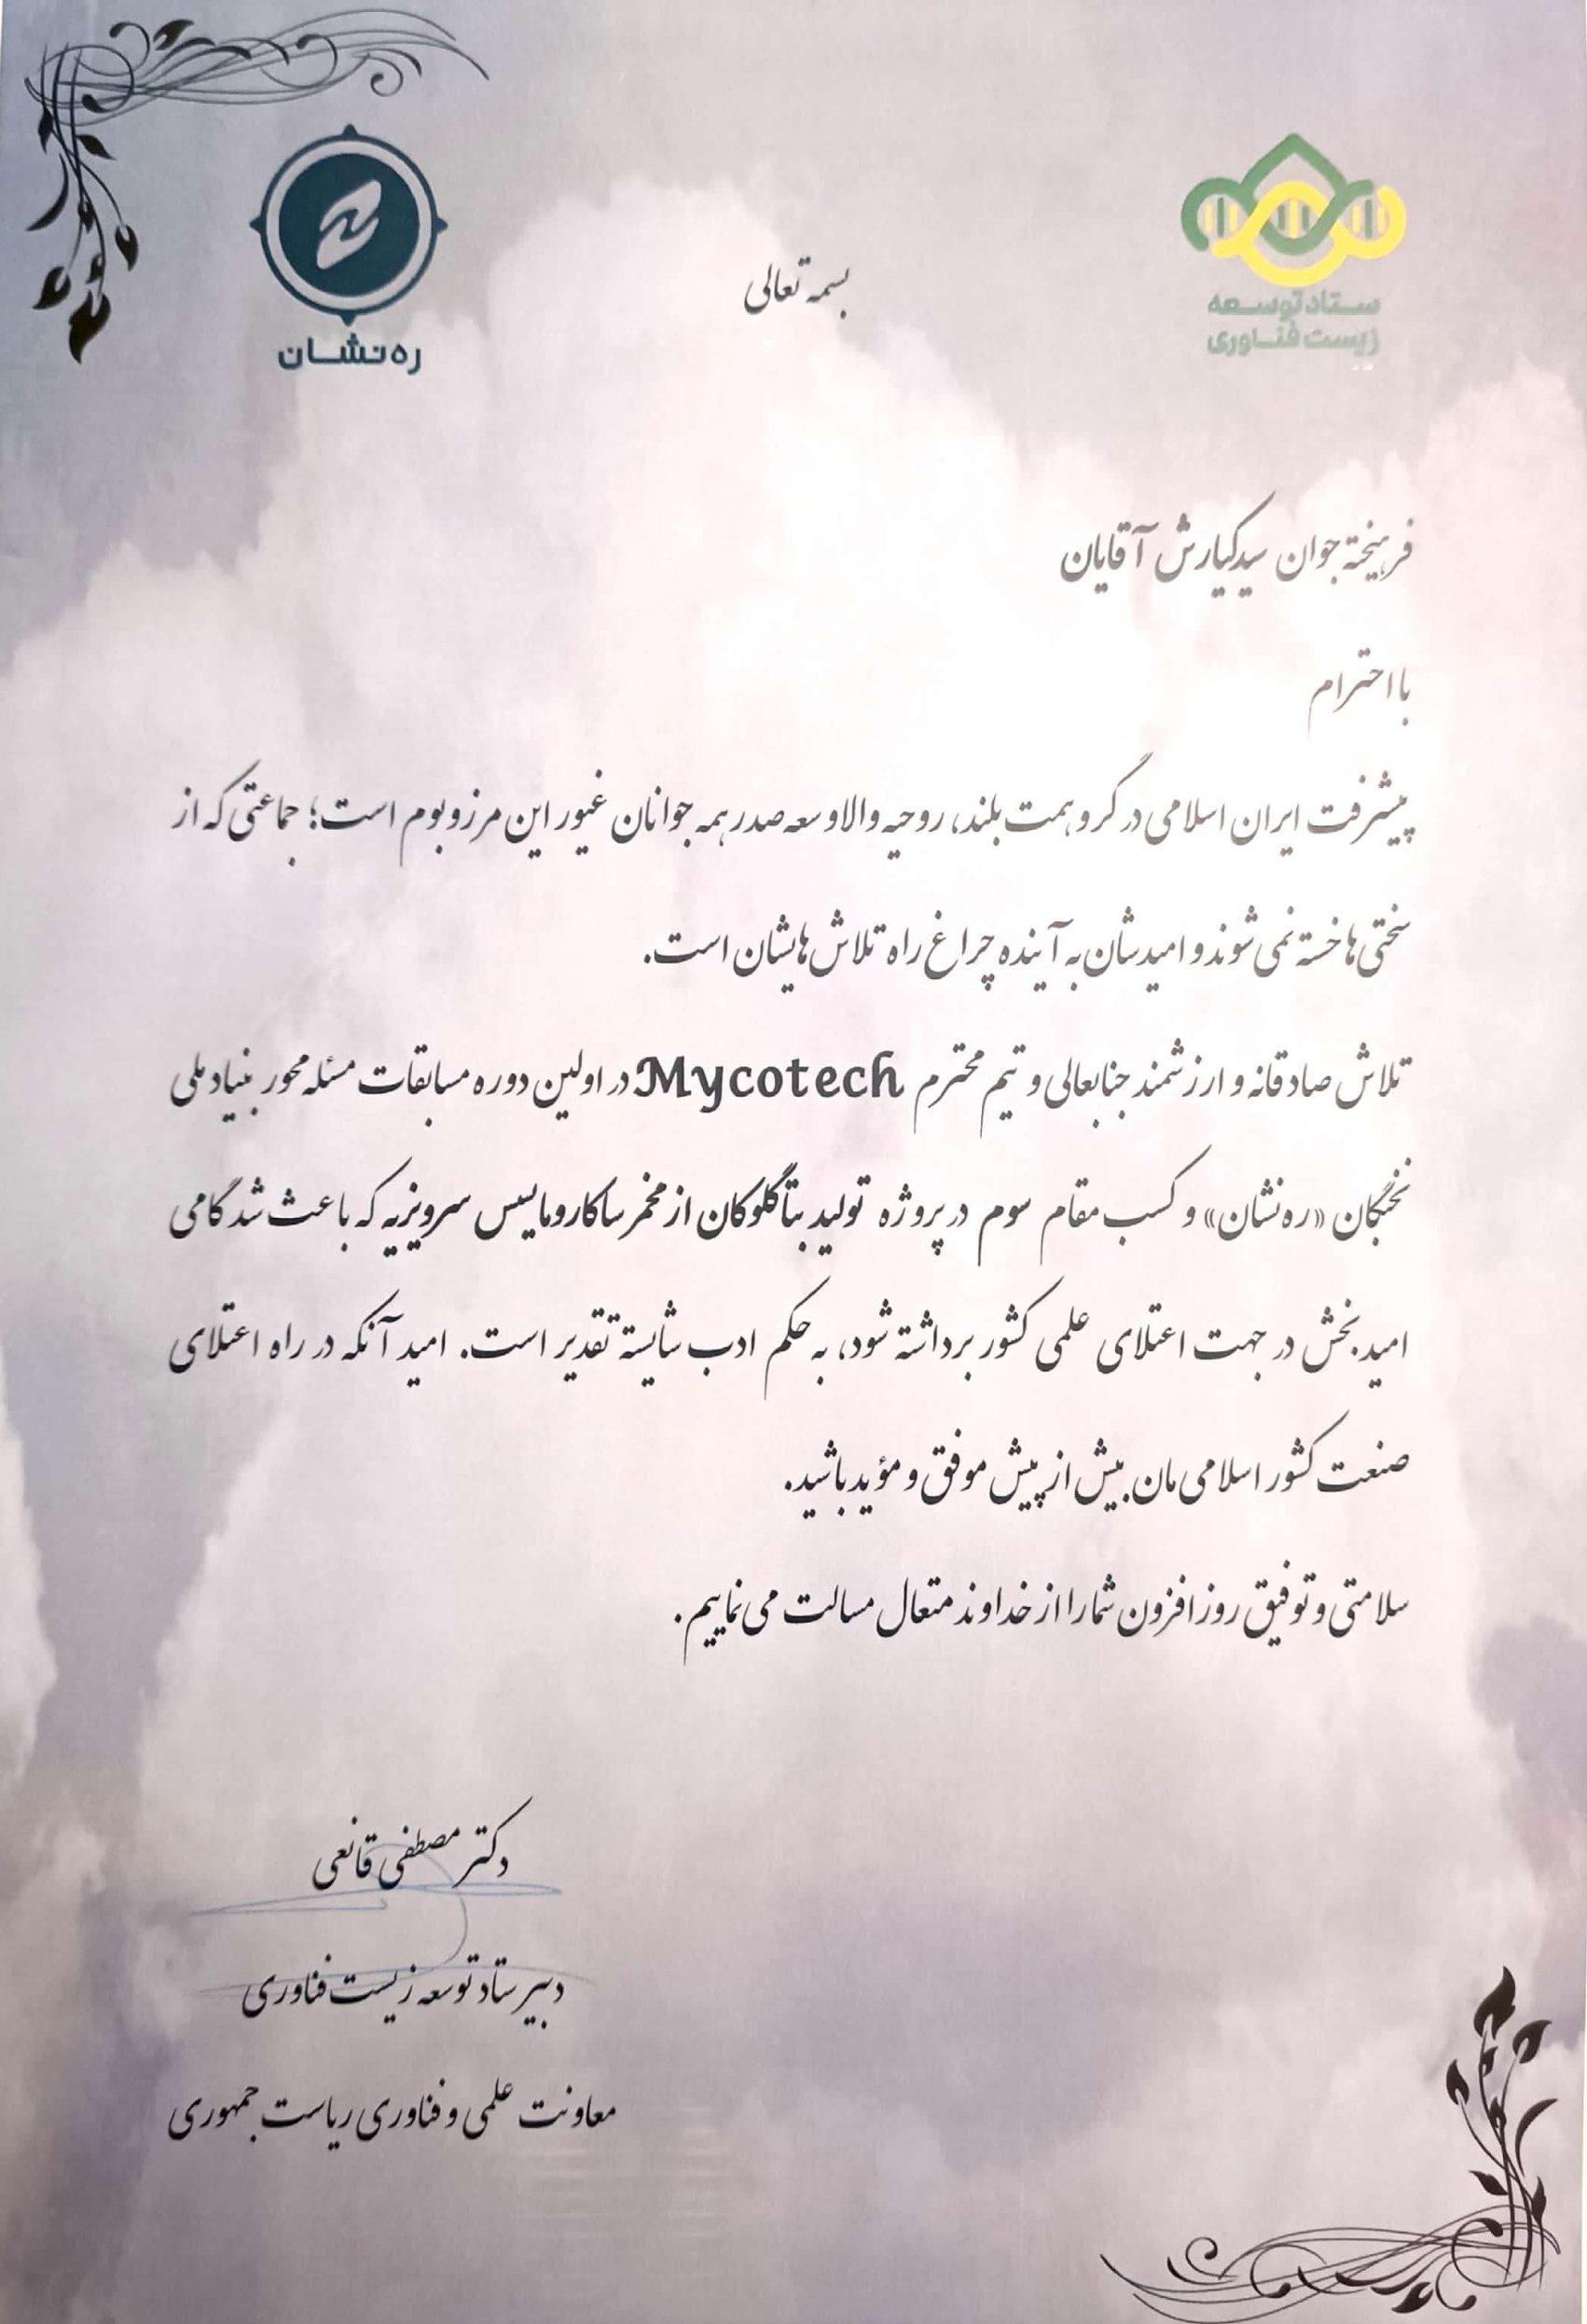 بسمه تعالی
ستاد توسعه
زیست فناوری
ره نشان
فرهیخته جوان سید کیارش آقایان
با احترام
پیشرفت ایران اسلامی در گرو همت بلند، روحیه والا و سعه صدر همه جوانان غیور این مرز و بوم است؛ جماعتی که از
سختی‌ها خسته نمی‌شوند و امیدشان به آینده چراغ راه تلاش‌هایشان است.
تلاش صادقانه و ارزشمند جنابعالی و تیم محترم Mycotech در اولین دوره مسابقات مسئله محور بنیاد ملی
نخبگان «ره نشان» و کسب مقام سوم در پروژه تولید بتاگلوکان از مخمر ساکارومایسس سرویزیه که باعث شد گامی
امیدبخش در جهت اعتلای علمی کشور برداشته شود، به حکم ادب شایسته تقدیر است. امید آنکه در راه اعتلای
صنعت کشور اسلامی‌مان بیش از پیش موفق و مؤید باشید.
سلامتی و توفیق روزافزون شما را از خداوند متعال مسالت می‌نماییم.
دکتر مصطفی قانعی
دبیر ستاد توسعه زیست فناوری
معاونت علمی و فناوری ریاست جمهوری